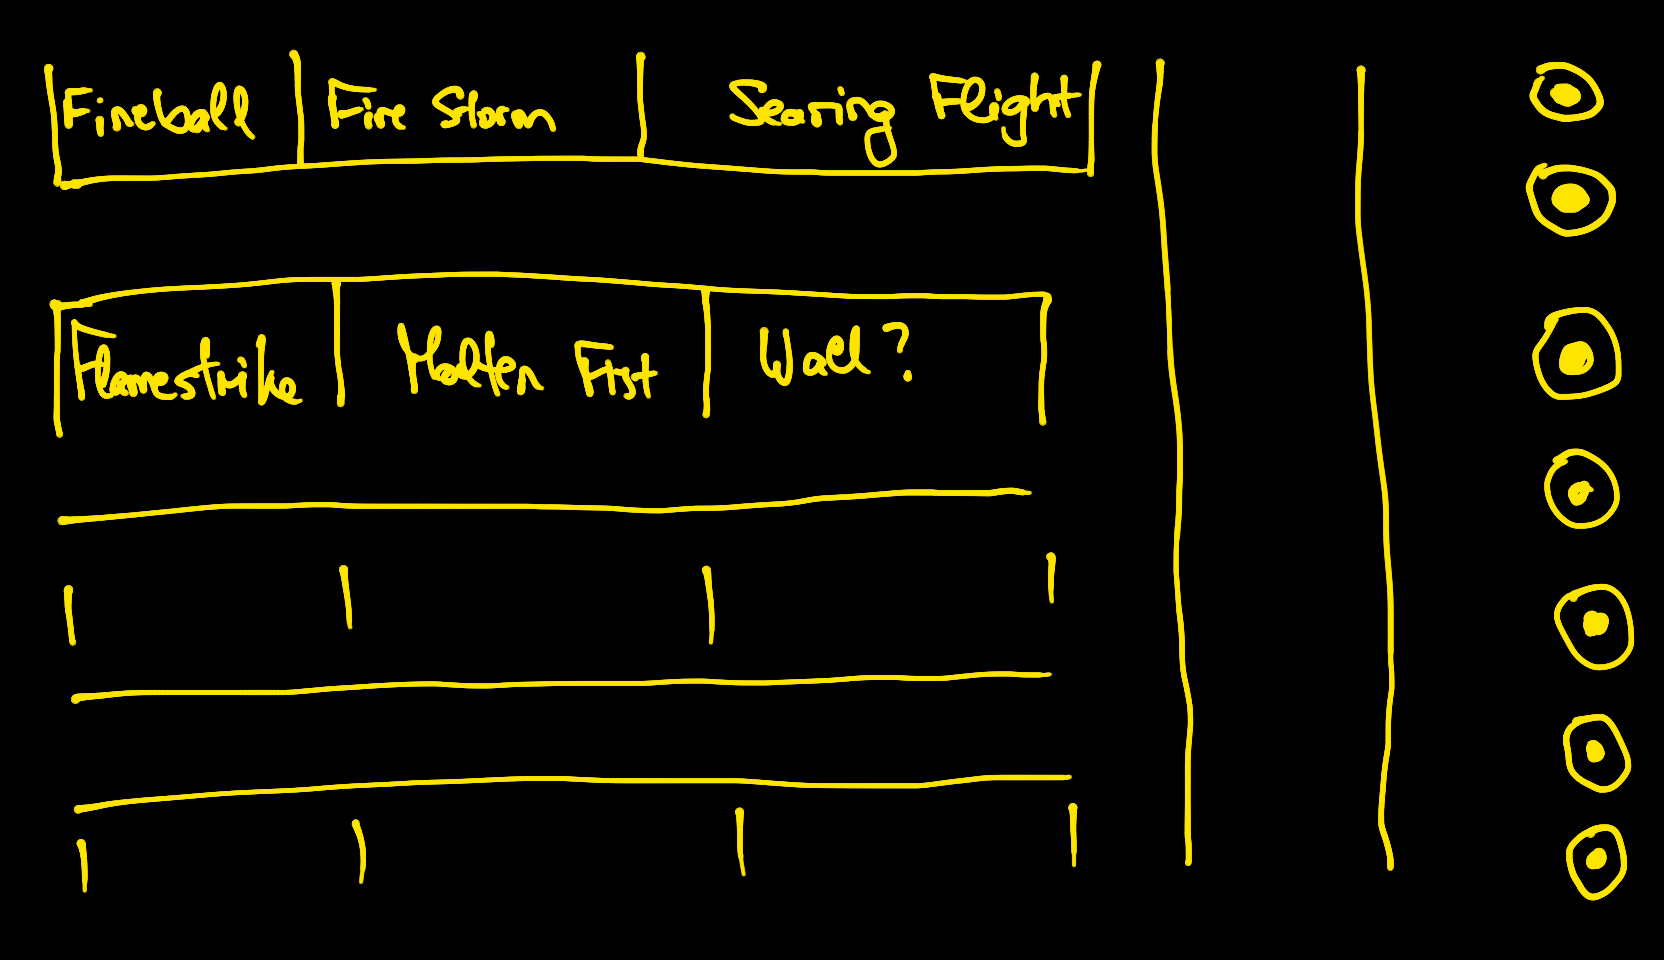 Fireball Fire Storm Searing Flight
Flamestrike Molten Fist Wall?